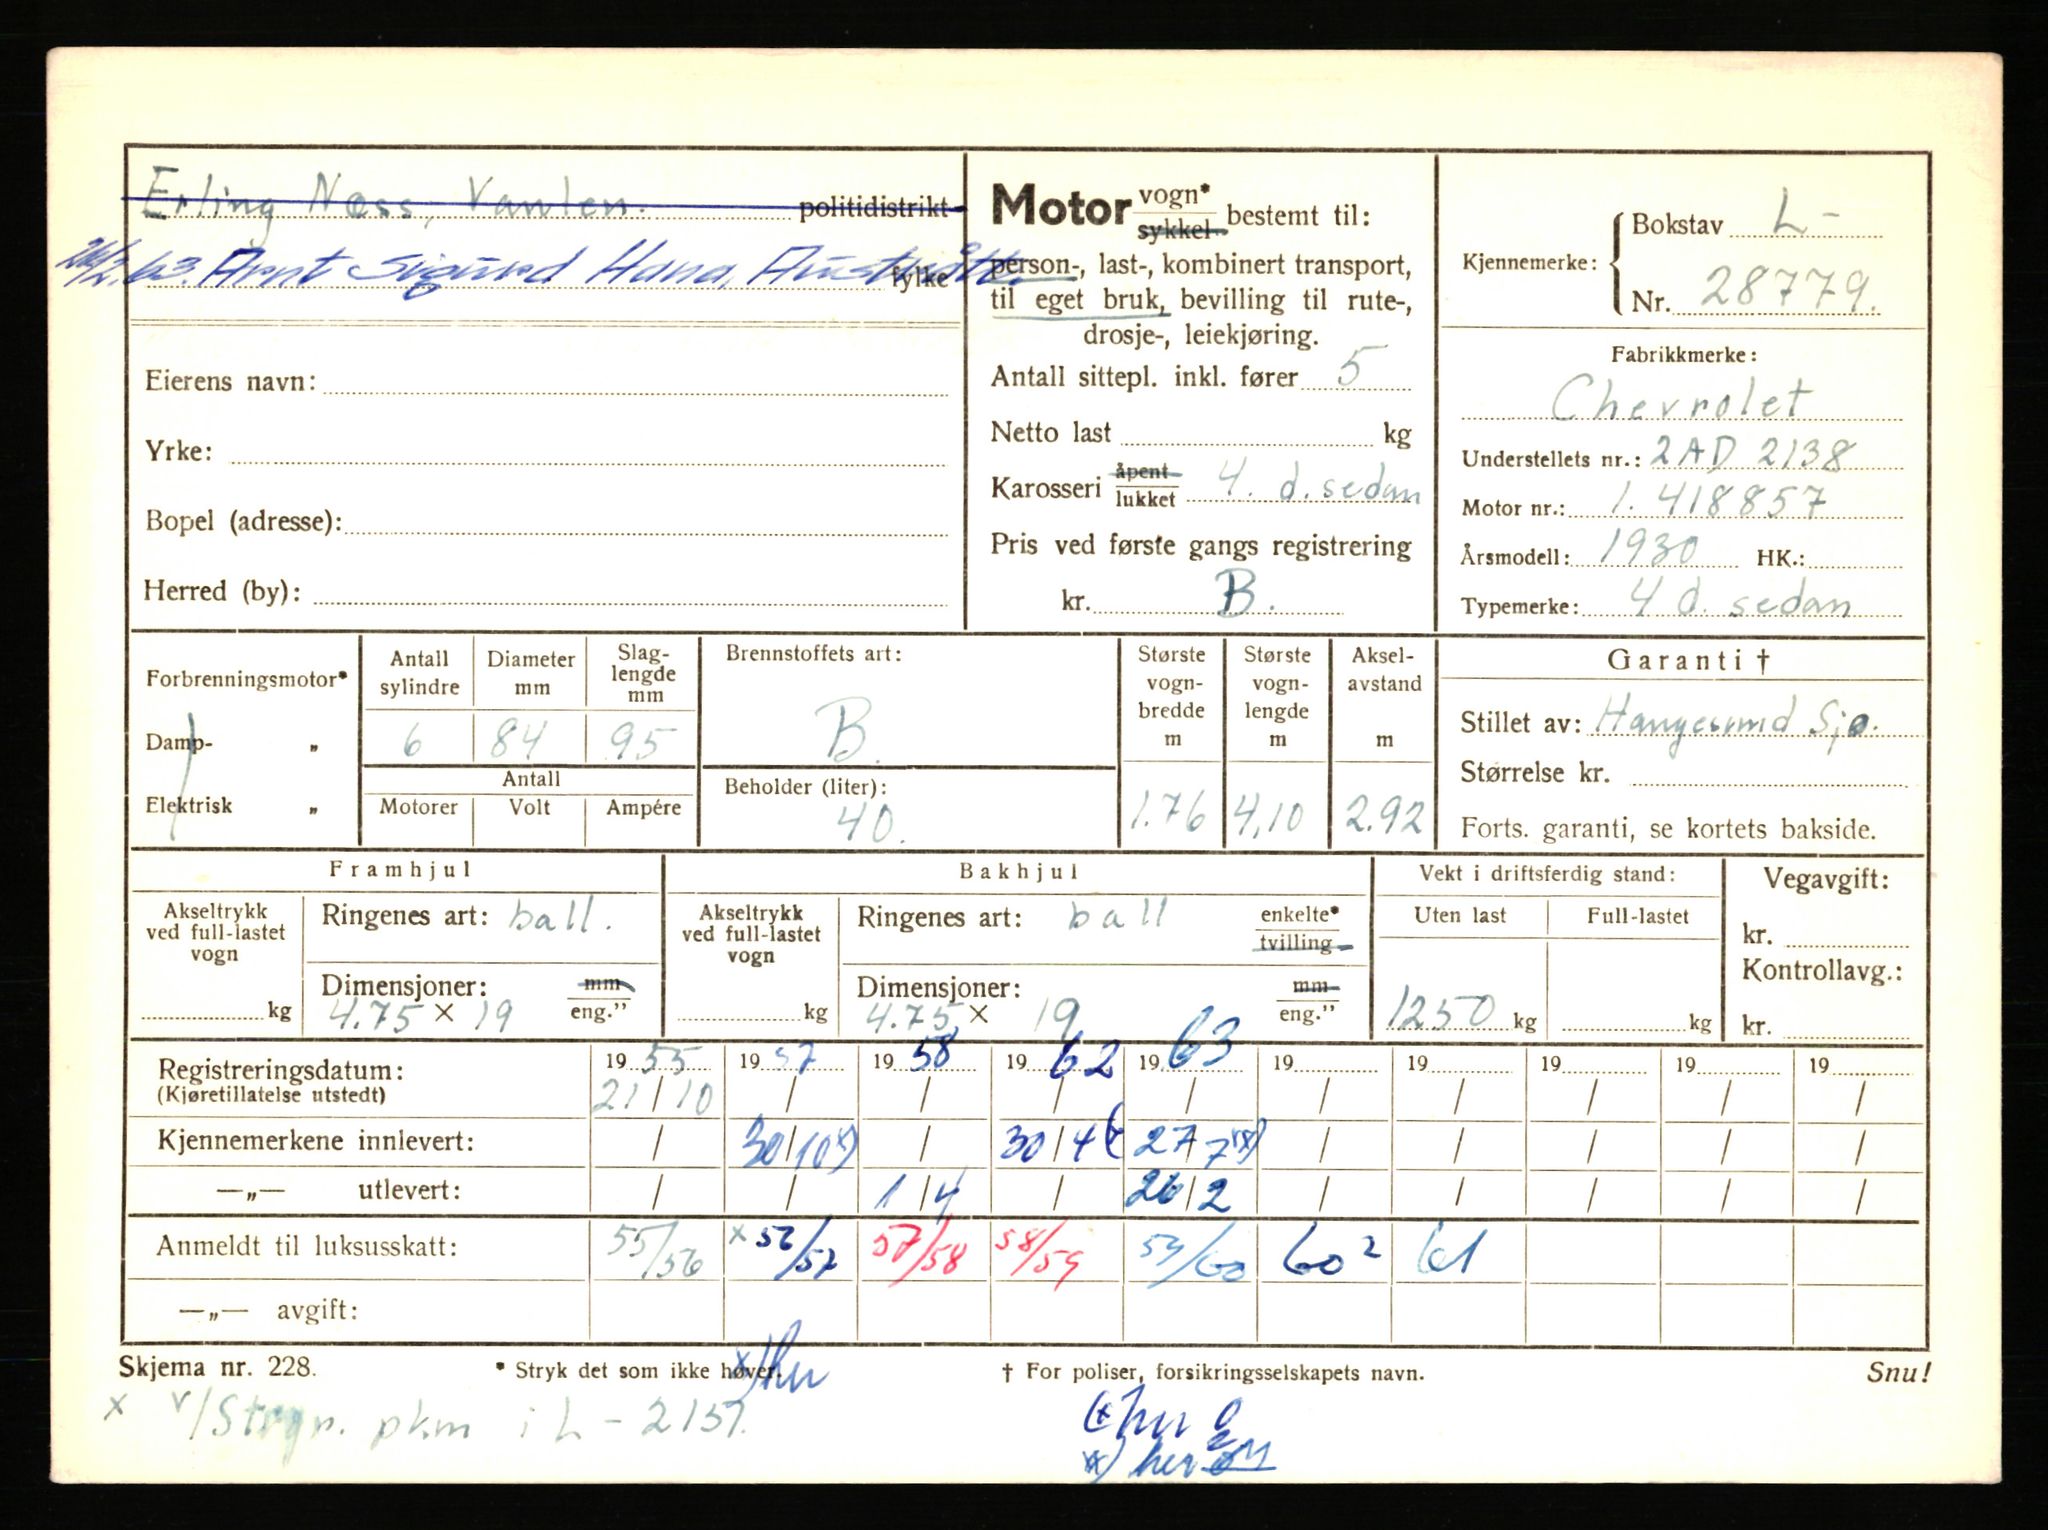 Erling Næss, politidistrikt
26/2.63. Arnt Sigurd Hana, fylke
Eierens navn:
Yrke:
Bopel (adresse):
Herred (by):
Motor vogn* sykkel bestemt til:
person-, last-, kombinert transport,
til eget bruk, bevilling til rute-,
drosje-, leiekjøring.
Antall sittepl. inkl. fører 5
Netto last kg
Karosseri åpent lukket 4. d. sedan
Pris ved første gangs registrering
kr. B.
Kjennemerke: Bokstav L-
Nr. 28779.
Fabrikkmerke:
Chevrolet
Understellets nr.: 2AD 2138
Motor nr.: 1.418857
Årsmodell: 1930 HK.:
Typemerke: 4 d. sedan
Forbrenningsmotor*
Damp- „
Elektrisk „
Antall sylindre Diameter mm Slag-lengde mm
6 84 95
Antall
Motorer Volt Ampére
Brennstoffets art:
B.
Beholder (liter):
40.
Største vogn-bredde m Største vogn-lengde m Aksel-avstand m
1.76 4,10 2.92
Garanti †
Stillet av: Haugesund Sjø.
Størrelse kr.
Forts. garanti, se kortets bakside.
Framhjul
Akseltrykk ved full-lastet vogn
kg
Ringenes art: ball.
Dimensjoner: mm
4.75 × 19 eng.”
Bakhjul
Akseltrykk ved full-lastet vogn
kg
Ringenes art: ball enkelte* tvilling
Dimensjoner: mm
4.75 × 19 eng.”
Vekt i driftsferdig stand:
Uten last Full-lastet
1250 kg kg
Vegavgift:
kr.
Kontrollavg.:
kr.
Registreringsdatum: 1955 1957 1958 1962 1963 19 19 19 19 19
(Kjøretillatelse utstedt) 21/10 / / / / / / / / /
Kjennemerkene innlevert: / 30/10 x) / 30/4 (x 27/7 xx) / / / / /
—„— utlevert: / / 1/4 / 26/2 / / / / /
Anmeldt til luksusskatt: 55/56 x 56/57 57/58 58/59 59/60 60² 61
—„— avgift:
Skjema nr. 228. * Stryk det som ikke høver. x) her † For poliser, forsikringsselskapets navn. Snu!
x v/Strgn. pkm i L-2157.
(x her
xx) her